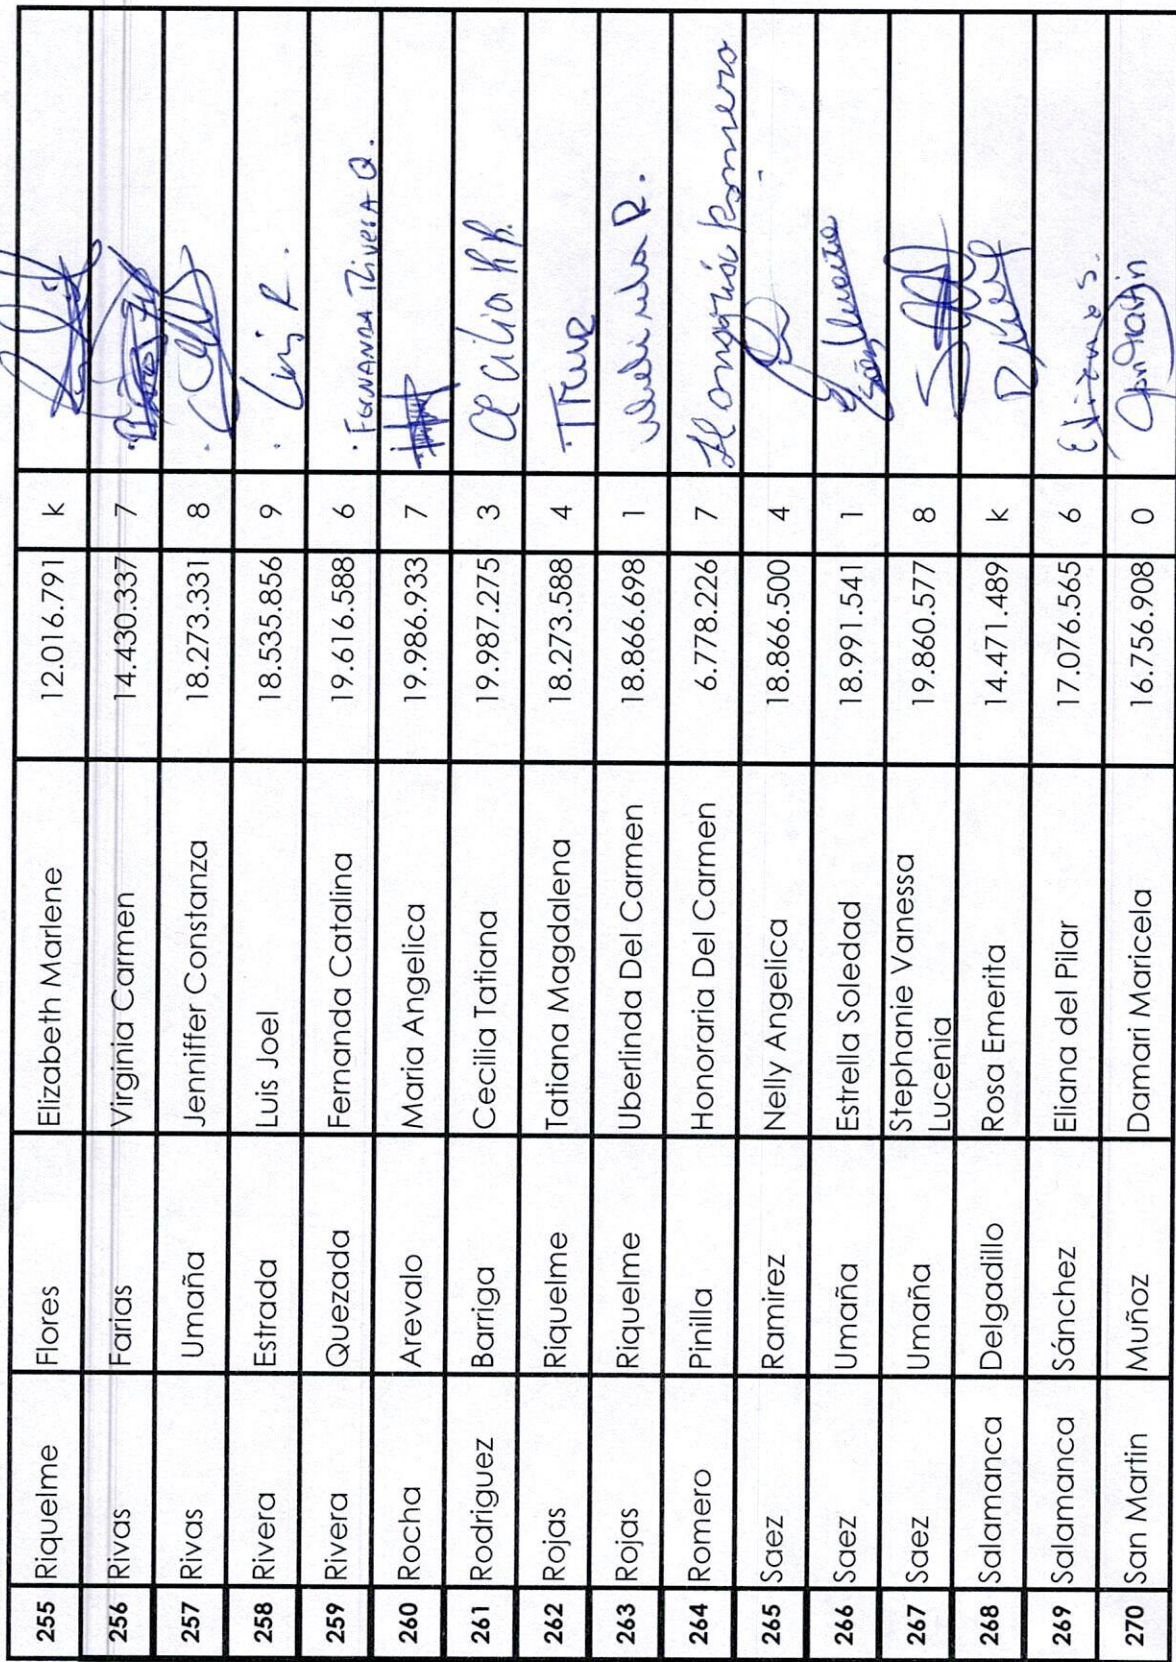 255 Riquelme Flores Elizabeth Marlene 12.016.791 k
256 Rivas Farias Virginia Carmen 14.430.337 7
257 Rivas Umaña Jenniffer Constanza 18.273.331 8
258 Rivera Estrada Luis Joel 18.535.856 9 Luis R.
259 Rivera Quezada Fernanda Catalina 19.616.588 6 FERNANDA RIVERA Q.
260 Rocha Arevalo Maria Angelica 19.986.933 7
261 Rodriguez Barriga Cecilia Tatiana 19.987.275 3
262 Rojas Riquelme Tatiana Magdalena 18.273.588 4
263 Rojas Riquelme Uberlinda Del Carmen 18.866.698 1
264 Romero Pinilla Honoraria Del Carmen 6.778.226 7
265 Saez Ramirez Nelly Angelica 18.866.500 4
266 Saez Umaña Estrella Soledad 18.991.541 1
267 Saez Umaña Stephanie Vanessa
Lucenia 19.860.577 8
268 Salamanca Delgadillo Rosa Emerita 14.471.489 k
269 Salamanca Sánchez Eliana del Pilar 17.076.565 6
270 San Martin Muñoz Damari Maricela 16.756.908 0